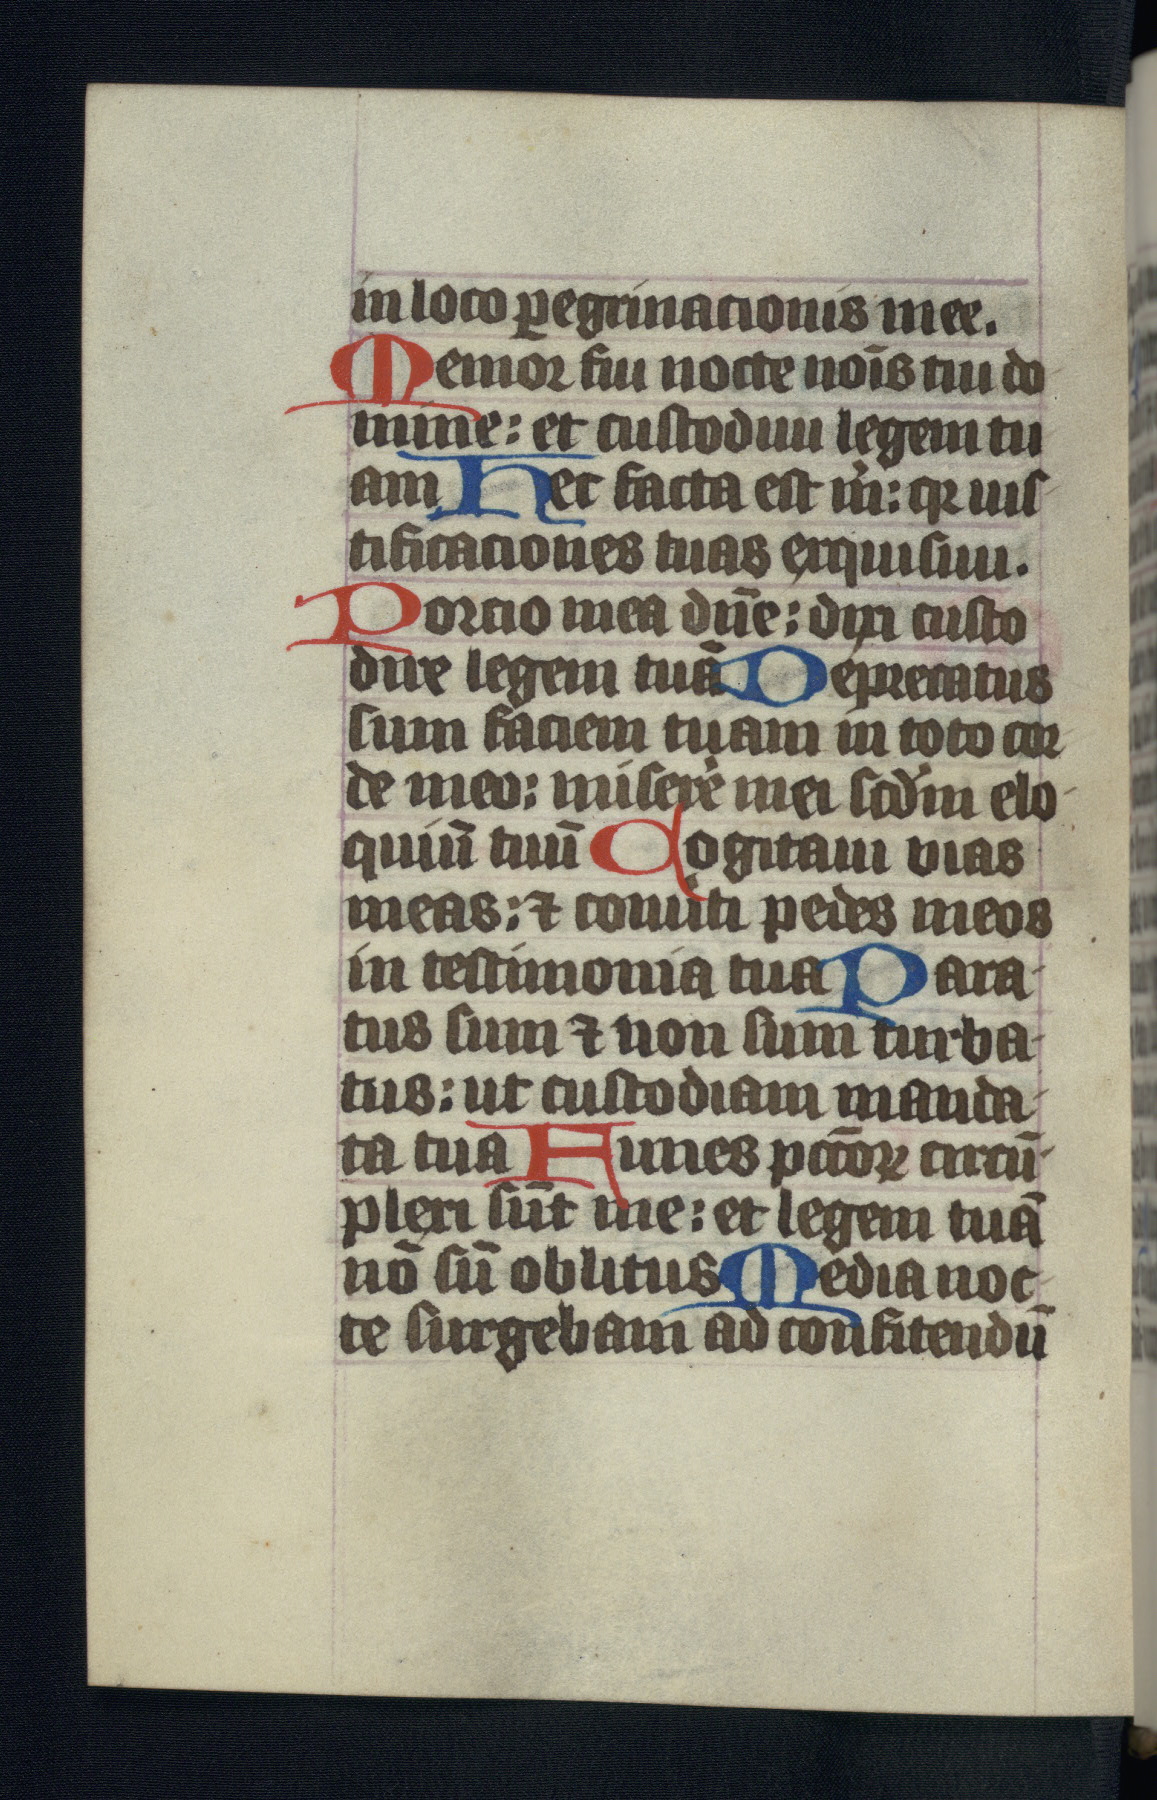 in loco ꝑegrinacionis mee.
Memor fui nocte noīs tui do
mine: et custodiui legem tu
am Hec facta est m̄: qꝛ ius
tificaciones tuas exquisiui.
Porcio mea dn̄e: dixi custo
dire legem tuā Deprecatus
sum faciem tuam in toto cor
de meo: miserē mei scd̄m elo-
quiū tuū Cogitaui vias
meas: ⁊ conuerti pedes meos
in testimonia tua Para-
tus sum ⁊ non sum turba-
tus: ut custodiam manda-
ta tua Funes pctōꝝ circū-
plexi sūt me: et legem tuā
nō sū oblitus Media noc-
te surgebam ad confitendū